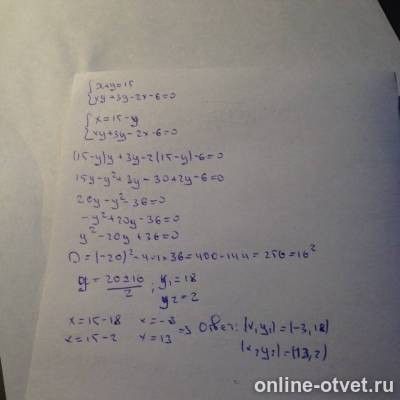 {x+y=15
{xy+3y-2x-6=0
{x=15-y
{xy+3y-2x-6=0
(15-y)y+3y-2(15-y)-6=0
15y-y²+3y-30+2y-6=0
20y-y²-36=0
-y²+20y-36=0
y²-20y+36=0
D=(-20)²-4·1×36=400-144=256=16²
y=20±16/2; y₁=18
y₂=2
x=15-18 x=-3
x=15-2 x=13 => Ответ: (x,y₁)=(-3,18)
(x₂y₂)=(13,2)
online-otvet.ru